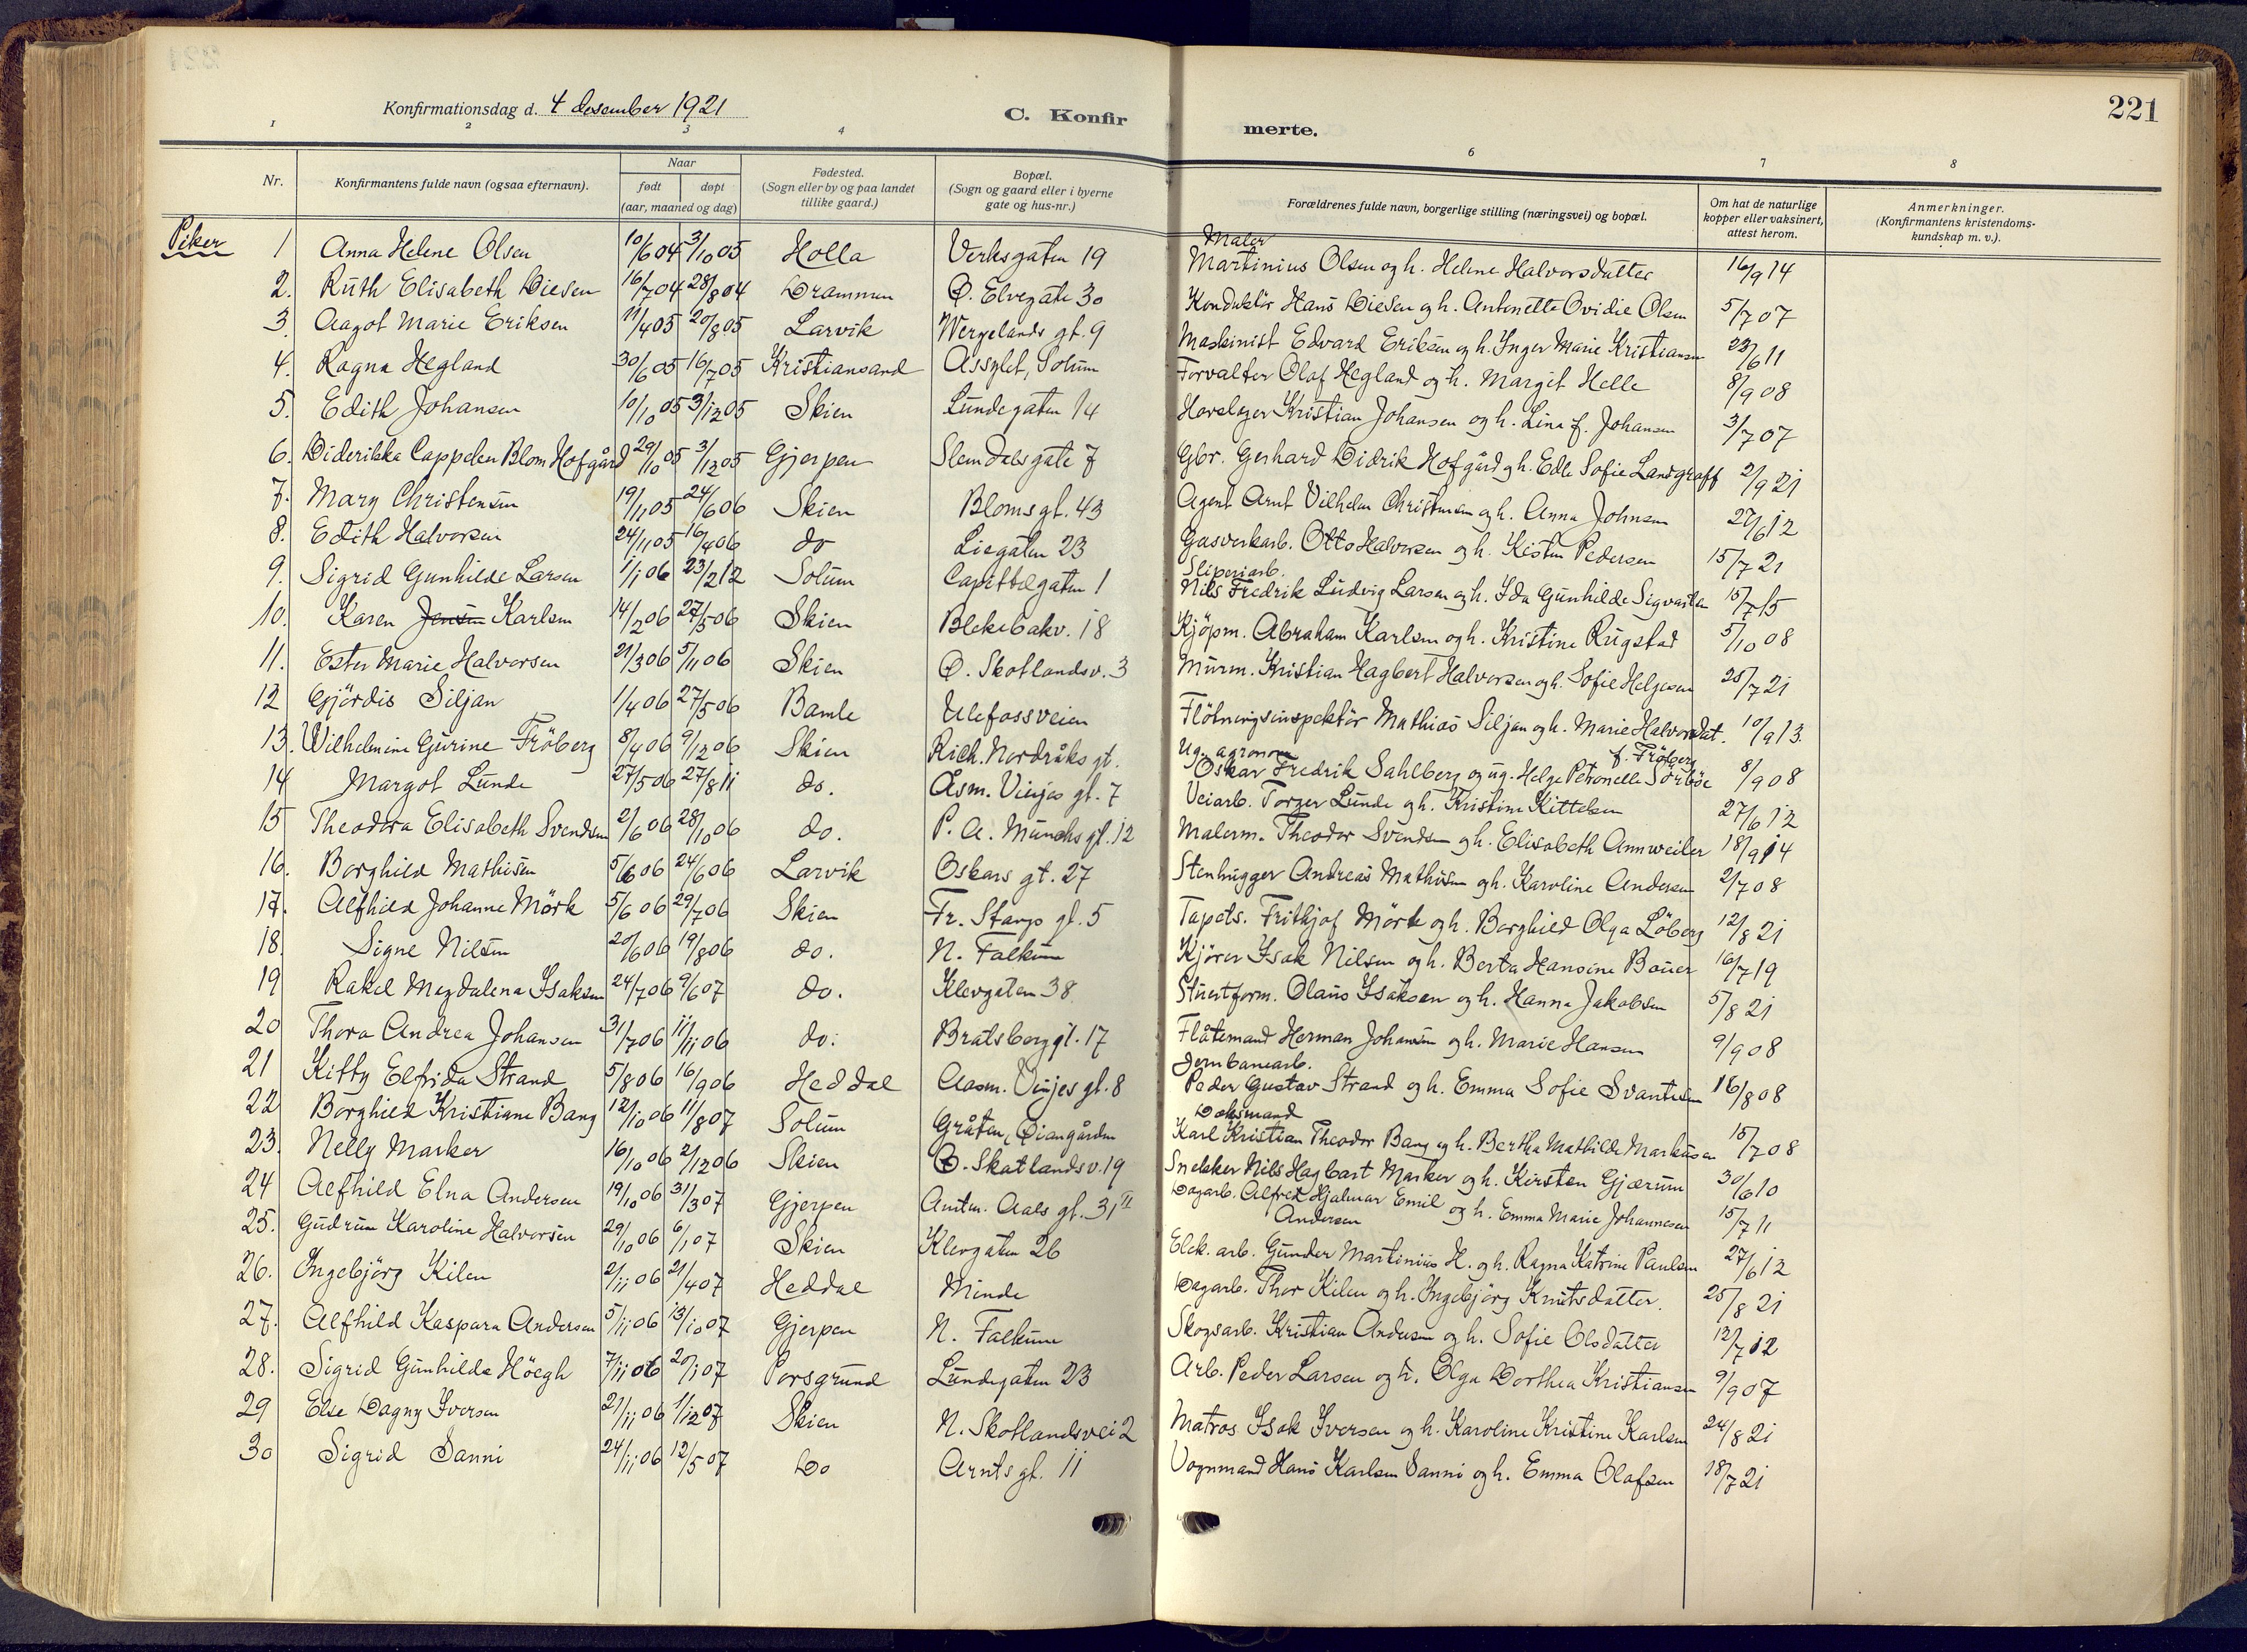 221
Konfirmationsdag d. 4 desember 1921
C. Konfir merte.
1 2 3 4 6 7 8
Nr. Konfirmantens fulde navn (ogsaa efternavn). Naar født døpt (aar, maaned og dag) Fødested. (Sogn eller by og paa landet tillike gaard.) Bopæl. (Sogn og gaard eller i byerne gate og hus-nr.) Forældrenes fulde navn, borgerlige stilling (næringsvei) og bopæl. Om hat de naturlige kopper eller vaksinert, attest herom. Anmerkninger. (Konfirmantens kristendomskundskap m. v.).
Piker
1 Anna Helene Olsen 10/6 04 3/10 05 Holla Verksgaten 19 Maler Martinius Olsen og h. Helene Halvorsdatter 16/9 14
2. Ruth Elisabeth Diesen 16/7 04 28/8 04 Drammen Ø. Elvegate 30 Konduktör Hans Diesen og h. Antonette Ovidie Olsen 5/7 07
3. Aagot Marie Eriksen 11/4 05 20/8 05 Larvik Wergelands gt. 9 Maskinist Edvard Eriksen og h. Inger Marie Kristiansen 23/6 11
4. Ragna Hegland 30/6 05 16/7 05 Kristiansand Assylet, Solum Forvalter Olaf Hegland og h. Margit Helle 8/9 08
5. Edith Johansen 10/10 05 3/12 05 Skien Lundegaten 14 Hovslager Kristian Johansen og h. Lina f. Johansen 3/7 07
6. Diderikka Cappelen Blom Hofgård 29/10 05 3/12 05 Gjerpen Slemdalsgate 7 Gbr. Gerhard Didrik Hofgård og h. Edle Sofie Landgraff 2/9 21
7. Mary Christensen 19/11 05 24/6 06 Skien Bloms gt. 43 Agent Arnt Vilhelm Christensen og h. Anna Johnsen 27/6 12
8. Edith Halvorsen 24/11 05 16/4 06 do Liegaten 23 Gasverkarb. Otto Halvorsen og h. Kisten Pedersen 15/7 21
9. Sigrid Gunhilde Larsen 1/1 06 23/2 12 Solum Capittelgaten 1 Sliperiarb. Nils Fredrik Ludvig Larsen og h. Ida Gunhilde Sigvartsen 15/7 15
10. Karen Jensen Karlsen 14/2 06 27/5 06 Skien Blekebakv. 18 Kjöpm. Abraham Karlsen og h. Kristine Rugstad 5/10 08
11. Ester Marie Halvorsen 21/3 06 5/11 06 Skien Ø. Skotlandsv. 3 Murm. Kristian Hagbert Halvorsen og h. Sofie Helgesen 25/7 21
12 Gjördis Siljan 1/4 06 27/5 06 Bamle Ulefossveien Flötningsinspektör Mathias Siljan og h. Marie Halvorsdat. 10/9 13.
13. Wilhelmine Gurine Fröberg 8/4 06 9/12 06 Skien Rich. Nordråks gt. Ug. agronom Oskar Fredrik Sahlberg og ug. Helga Petronelle Sörböe f. Fröberg 8/9 08
14 Margot Lunde 27/5 06 27/8 11 do. Åsm. Vinjes gt. 7 Veiarb. Torger Lunde og h. Kristine Kittelsen 27/6 12
15 Theodora Elisabeth Svendsen 2/6 06 28/10 06 do. P. A. Munchs gt. 12 Malerm. Theodor Svendsen og h. Elisabeth Annweiler 18/9 14
16. Borghild Mathisen 5/6 06 24/6 06 Larvik Oskars gt. 27 Stenhugger Andreas Mathisen og h. Karoline Andersen 2/7 08
17. Alfhild Johanne Mörk 5/6 06 29/7 06 Skien Fr. Stangs gt. 5 Tapets. Frithjof Mörk og h. Borghild Olga Löberg 12/8 21
18. Signe Nilsen 20/6 06 19/8 06 do. N. Falkum Kjörer Isak Nilsen og h. Berta Hansine Bouer 16/7 19
19 Rakel Magdalena Isaksen 24/7 06 9/6 07 do. Klevgaten 38 Stuertform. Olaus Isaksen og h. Hanna Jakobsen 5/8 21
20 Thora Andrea Johansen 31/7 06 11/11 06 do. Bratsberggt. 17 Flåtemand Herman Johansen og h. Marie Hansen 9/9 08
21 Kitty Elfrida Strand 5/8 06 16/9 06 Heddal Aasm. Vinjes gt. 8 Jernbanearb. Peder Gustav Strand og h. Emma Sofie Svantesen 16/8 08
22 Borghild Kristiane Bang 12/10 06 11/8 07 Solum Gråten, Öiangården Doksmand Karl Kristian Theodor Bang og h. Bertha Mathilde Markusen 15/7 08
23. Nelly Marker 16/10 06 2/12 06 Skien Ø. Skotlandsv. 19 Snekker Nils Hagbart Marker og h. Kirsten Gjærum 30/6 10
24 Alfhild Elna Andersen 19/10 06 31/3 07 Gjerpen Amtm. Aals gt. 31 II Dagarb. Alfred Hjalmar Emil Andersen og h. Emma Marie Johannesen 15/7 11
25. Gudrun Karoline Halvorsen 29/10 06 6/1 07 Skien Klevgaten 26 Elek. arb. Gunder Martinius H. og h. Ragna Katrine Paulsen 27/6 12
26. Ingebjörg Kilen 2/11 06 21/4 07 Heddal Minde Dagarb. Thor Kilen og h. Ingebjörg Knutsdatter. 25/8 21
27. Alfhild Kaspara Andersen 5/11 06 13/10 07 Gjerpen N. Falkum Skogsarb. Kristian Andersen og h. Sofie Olsdatter 12/7 12
28. Sigrid Gunhilda Höegh 7/11 06 20/1 07 Porsgrund Lundegaten 23 Arb. Peder Larsen og h. Olga Dorthea Kristiansen 9/9 07
29 Else Dagny Iversen 21/11 06 1/12 07 Skien N. Skotlandsvei 2 Matros Isak Iversen og h. Karoline Kristine Karlsen 24/8 21
30 Sigrid Sanni 24/11 06 12/5 07 Do Arnts gt. 11 Vognmand Hans Karlsen Sanni og h. Emma Olafsen 18/7 21